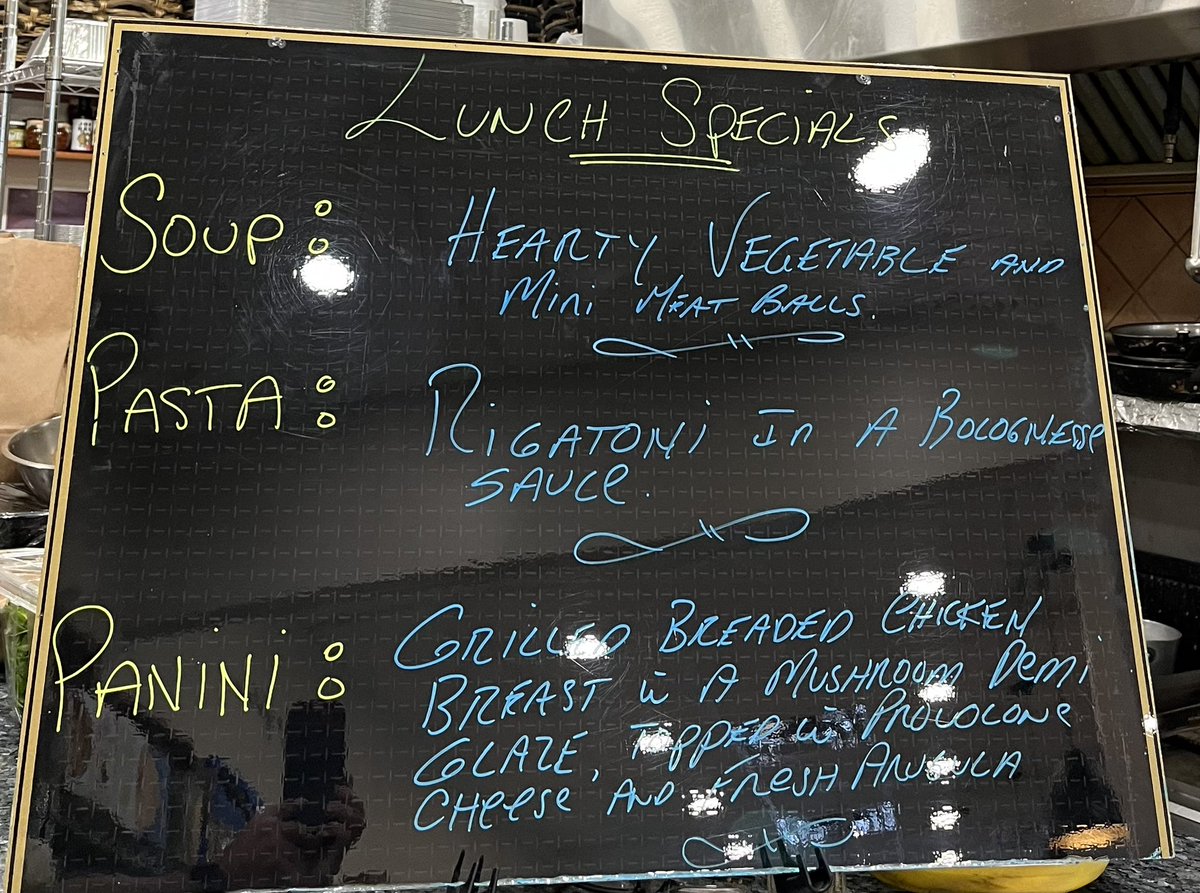 Lunch Specials
Soup: Hearty Vegetable and
Mini Meat Balls.
Pasta: Rigatoni In A Bolognese
Sauce.
Panini: Grilled Breaded Chicken
Breast w A Mushroom Demi
Glaze, Topped w Provolone
Cheese And Fresh Arugula